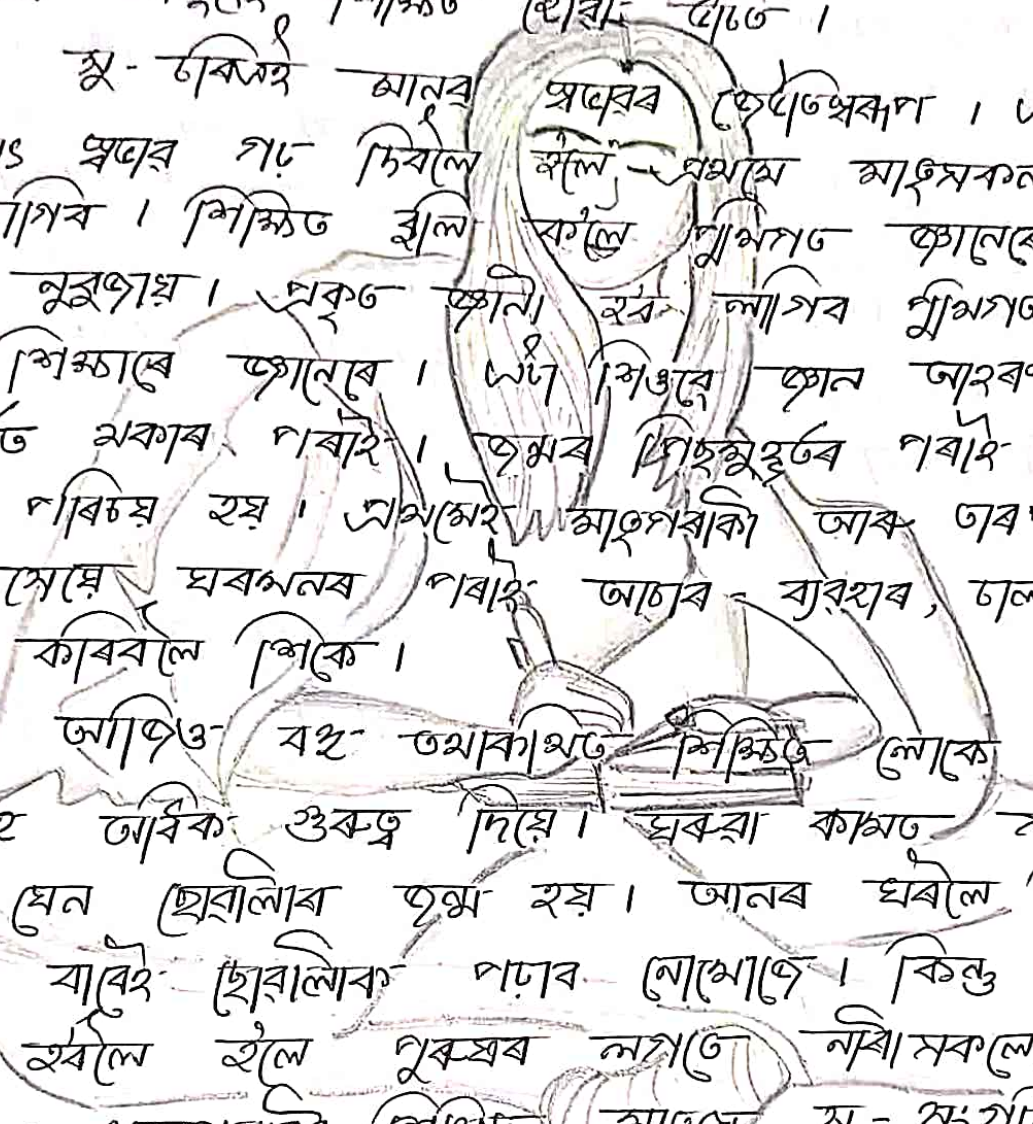 শিক্ষিত হোৱা
সু - চৰিত্ৰই মানৱ স্বভাৱৰ জেউতিস্বৰূপ ।
স্বভাৱ গঢ় দিবলৈ হ'লে প্ৰথমে মাতৃসকল
লাগিব । শিক্ষিত বুলি ক'লে পুথিগত জ্ঞানেৰে
নুবুজায় । প্ৰকৃত জ্ঞানী হ'ব লাগিব পুথিগত
শিক্ষাৰে জ্ঞানেৰে । এটা শিশুৱে জ্ঞান আহৰণ
পৰাই । জন্মৰ পিছমুহূৰ্তৰ পৰাই
পৰিচয় হয় । প্ৰথমেই মাতৃগৰাকী আৰু তাৰ
ঘৰখনৰ পৰাই আচাৰ - ব্যৱহাৰ,
কৰিবলৈ শিকে ।
আজিও বহু তথাকথিত শিক্ষিত লোকে
অধিক গুৰুত্ব দিয়ে । ঘৰুৱা কামত
যেন ছোৱালীৰ জন্ম হয় । আনৰ ঘৰলৈ
বাবেই ছোৱালীক পঢ়াব নোখোজে । কিন্তু
হ'বলৈ হ'লে পুৰুষৰ লগতে নাৰীসকলে